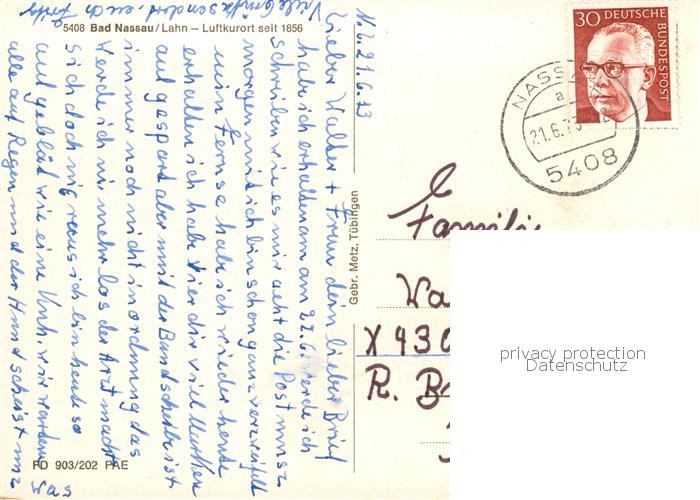 5408 Bad Nassau/Lahn – Luftkurort seit 1856
Nassau 21.6.73
Lieber Walter + Frau dein lieber Brief
hab ich erhalten am 22.6. werde ich
morgen mit ich bin schon ganz verzweifelt
schreiben wie es mir geht die Post muss
mein Fernse hab ich wieder heute
erhalten ich hab hier dir viel
auf gespart aber mit der Bandscheibe ist
immer noch nicht in ordnung das
werde ich nie mehr los der Arzt macht
sich doch nig raus ich bin heute so
auf geblät wie eine Kuh. wir warten
alle auf Regen und der Hund scheist uns
was
Viele Grüße sendet euch Fritz
Gebr. Metz, Tübingen
FD 903/202 PAE
30 DEUTSCHE BUNDESPOST
NASS
a
21.6.73
5408
Familie
Wa
X 430
R. B
privacy protection
Datenschutz